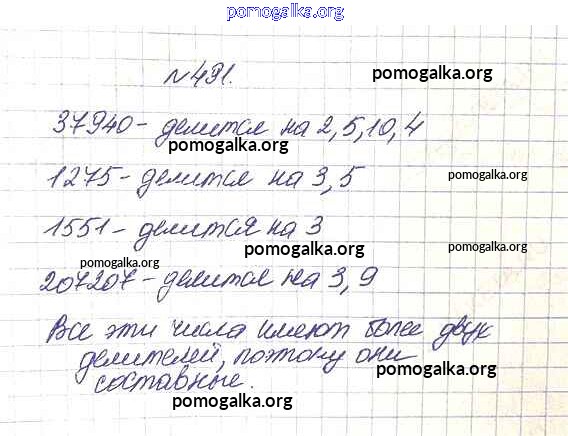 pomogalka.org
№491.
pomogalka.org
37940 - делится на 2, 5, 10, 4
pomogalka.org
1275 - делится на 3, 5
pomogalka.org
1551 - делится на 3
pomogalka.org
pomogalka.org
207207 - делится на 3, 9
Все эти числа имеют более двух
делителей, поэтому они
pomogalka.org
составные.
pomogalka.org